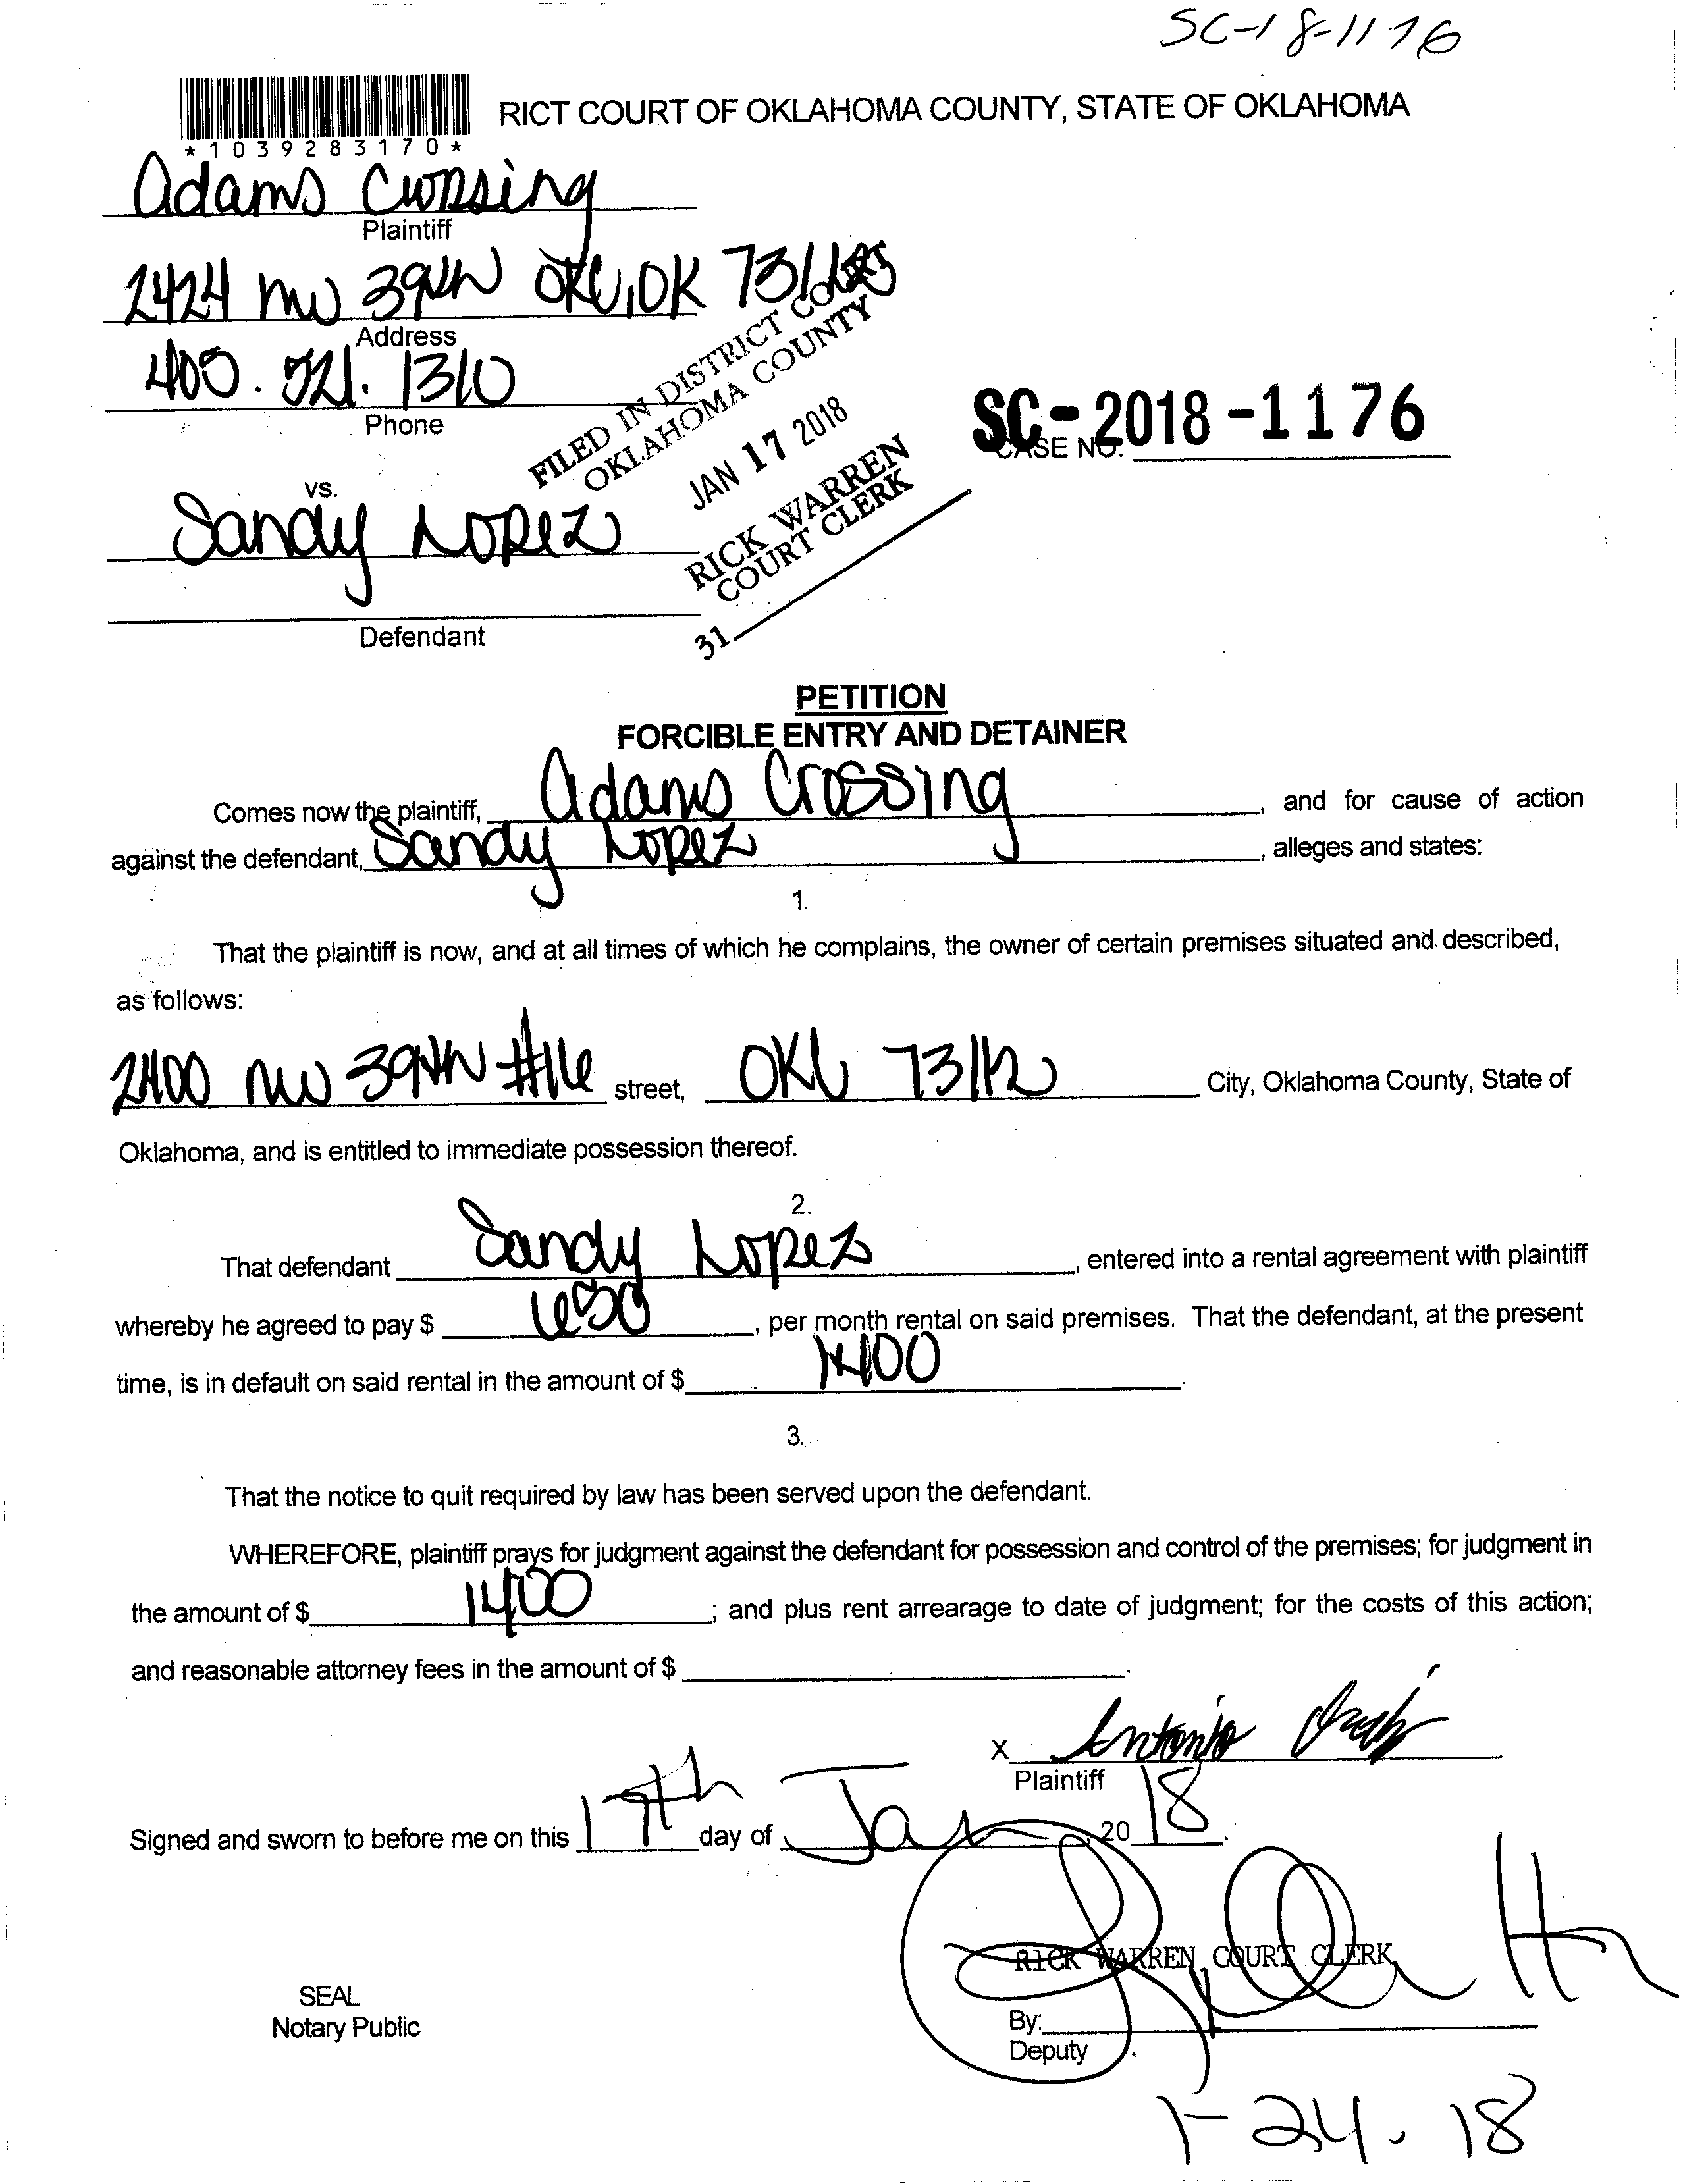 SC-18-1176
RICT COURT OF OKLAHOMA COUNTY, STATE OF OKLAHOMA
*1039283170*
Adams Crossing
Plaintiff
2424 NW 39th OKC, OK 73112
Address
405. 521. 1310
Phone
FILED IN DISTRICT COURT
OKLAHOMA COUNTY
JAN 17 2018
RICK WARREN
COURT CLERK
31
SC-2018-1176
CASE NO.
vs.
Sandy Lopez
Defendant
PETITION
FORCIBLE ENTRY AND DETAINER
Comes now the plaintiff, Adams Crossing, and for cause of action
against the defendant, Sandy Lopez, alleges and states:
1.
That the plaintiff is now, and at all times of which he complains, the owner of certain premises situated and described,
as follows:
2400 NW 39th #16 street, OKC 73112 City, Oklahoma County, State of
Oklahoma, and is entitled to immediate possession thereof.
2.
That defendant Sandy Lopez, entered into a rental agreement with plaintiff
whereby he agreed to pay $ 650, per month rental on said premises. That the defendant, at the present
time, is in default on said rental in the amount of $ 1400.
3.
That the notice to quit required by law has been served upon the defendant.
WHEREFORE, plaintiff prays for judgment against the defendant for possession and control of the premises; for judgment in
the amount of $ 1400; and plus rent arrearage to date of judgment; for the costs of this action;
and reasonable attorney fees in the amount of $ .
X Antonio
Plaintiff
Signed and sworn to before me on this 17th day of Jan, 2018.
RICK WARREN, COURT CLERK
SEAL
Notary Public
By:
Deputy
1-24.18